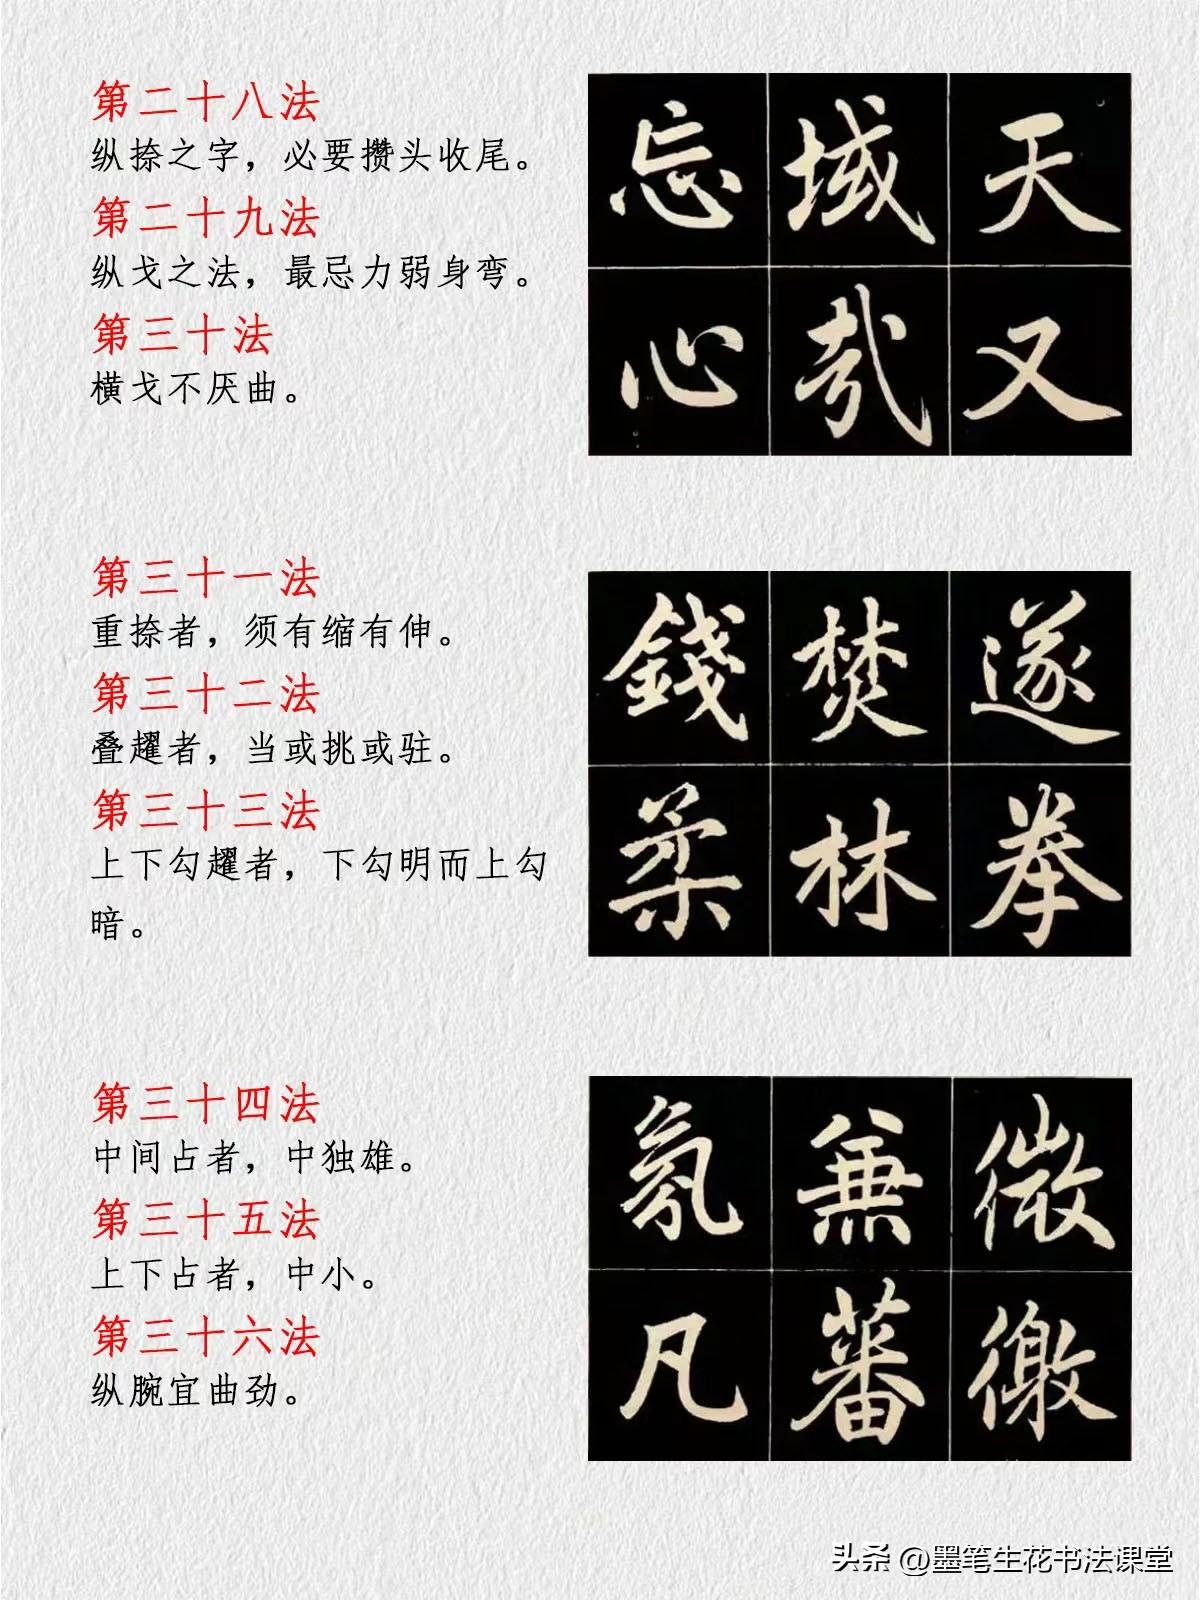 第二十八法
纵捺之字，必要攒头收尾。
第二十九法
纵戈之法，最忌力弱身弯。
第三十法
横戈不厌曲。
忘 域 天
心 哉 又
第三十一法
重捺者，须有缩有伸。
第三十二法
叠趯者，当或挑或驻。
第三十三法
上下勾趯者，下勾明而上勾
暗。
錢 焚 遂
柔 林 拳
第三十四法
中间占者，中独雄。
第三十五法
上下占者，中小。
第三十六法
纵腕宜曲劲。
氛 兼 微
凡 蕃 徼
头条 @墨笔生花书法课堂